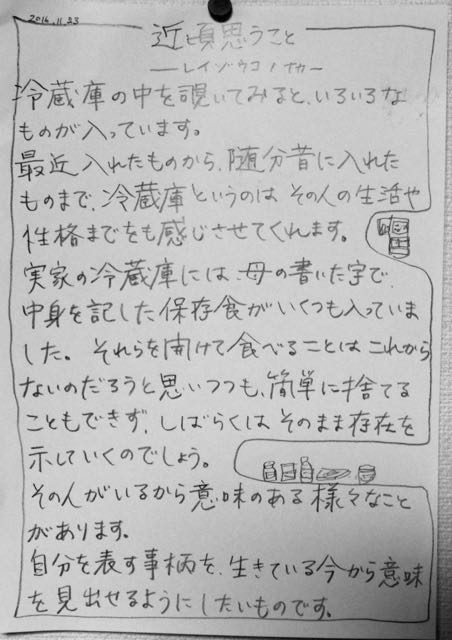 2016.11.23
近頃思うこと
―レイゾウコノナカ―
冷蔵庫の中を覗いてみると、いろいろな
ものが入っています。
最近入れたものから、随分昔に入れた
ものまで、冷蔵庫というのは その人の生活や
性格までをも感じさせてくれます。
実家の冷蔵庫には、母の書いた字で、
中身を記した保存食がいくつも入っていま
した。それらを開けて食べることは これから
ないのだろうと思いつつも、簡単に捨てる
こともできず、しばらくは そのまま存在を
示していくのでしょう。
その人がいるから意味のある様々なこと
があります。
自分を表す事柄を、生きている今から意味
を見出せるようにしたいものです。